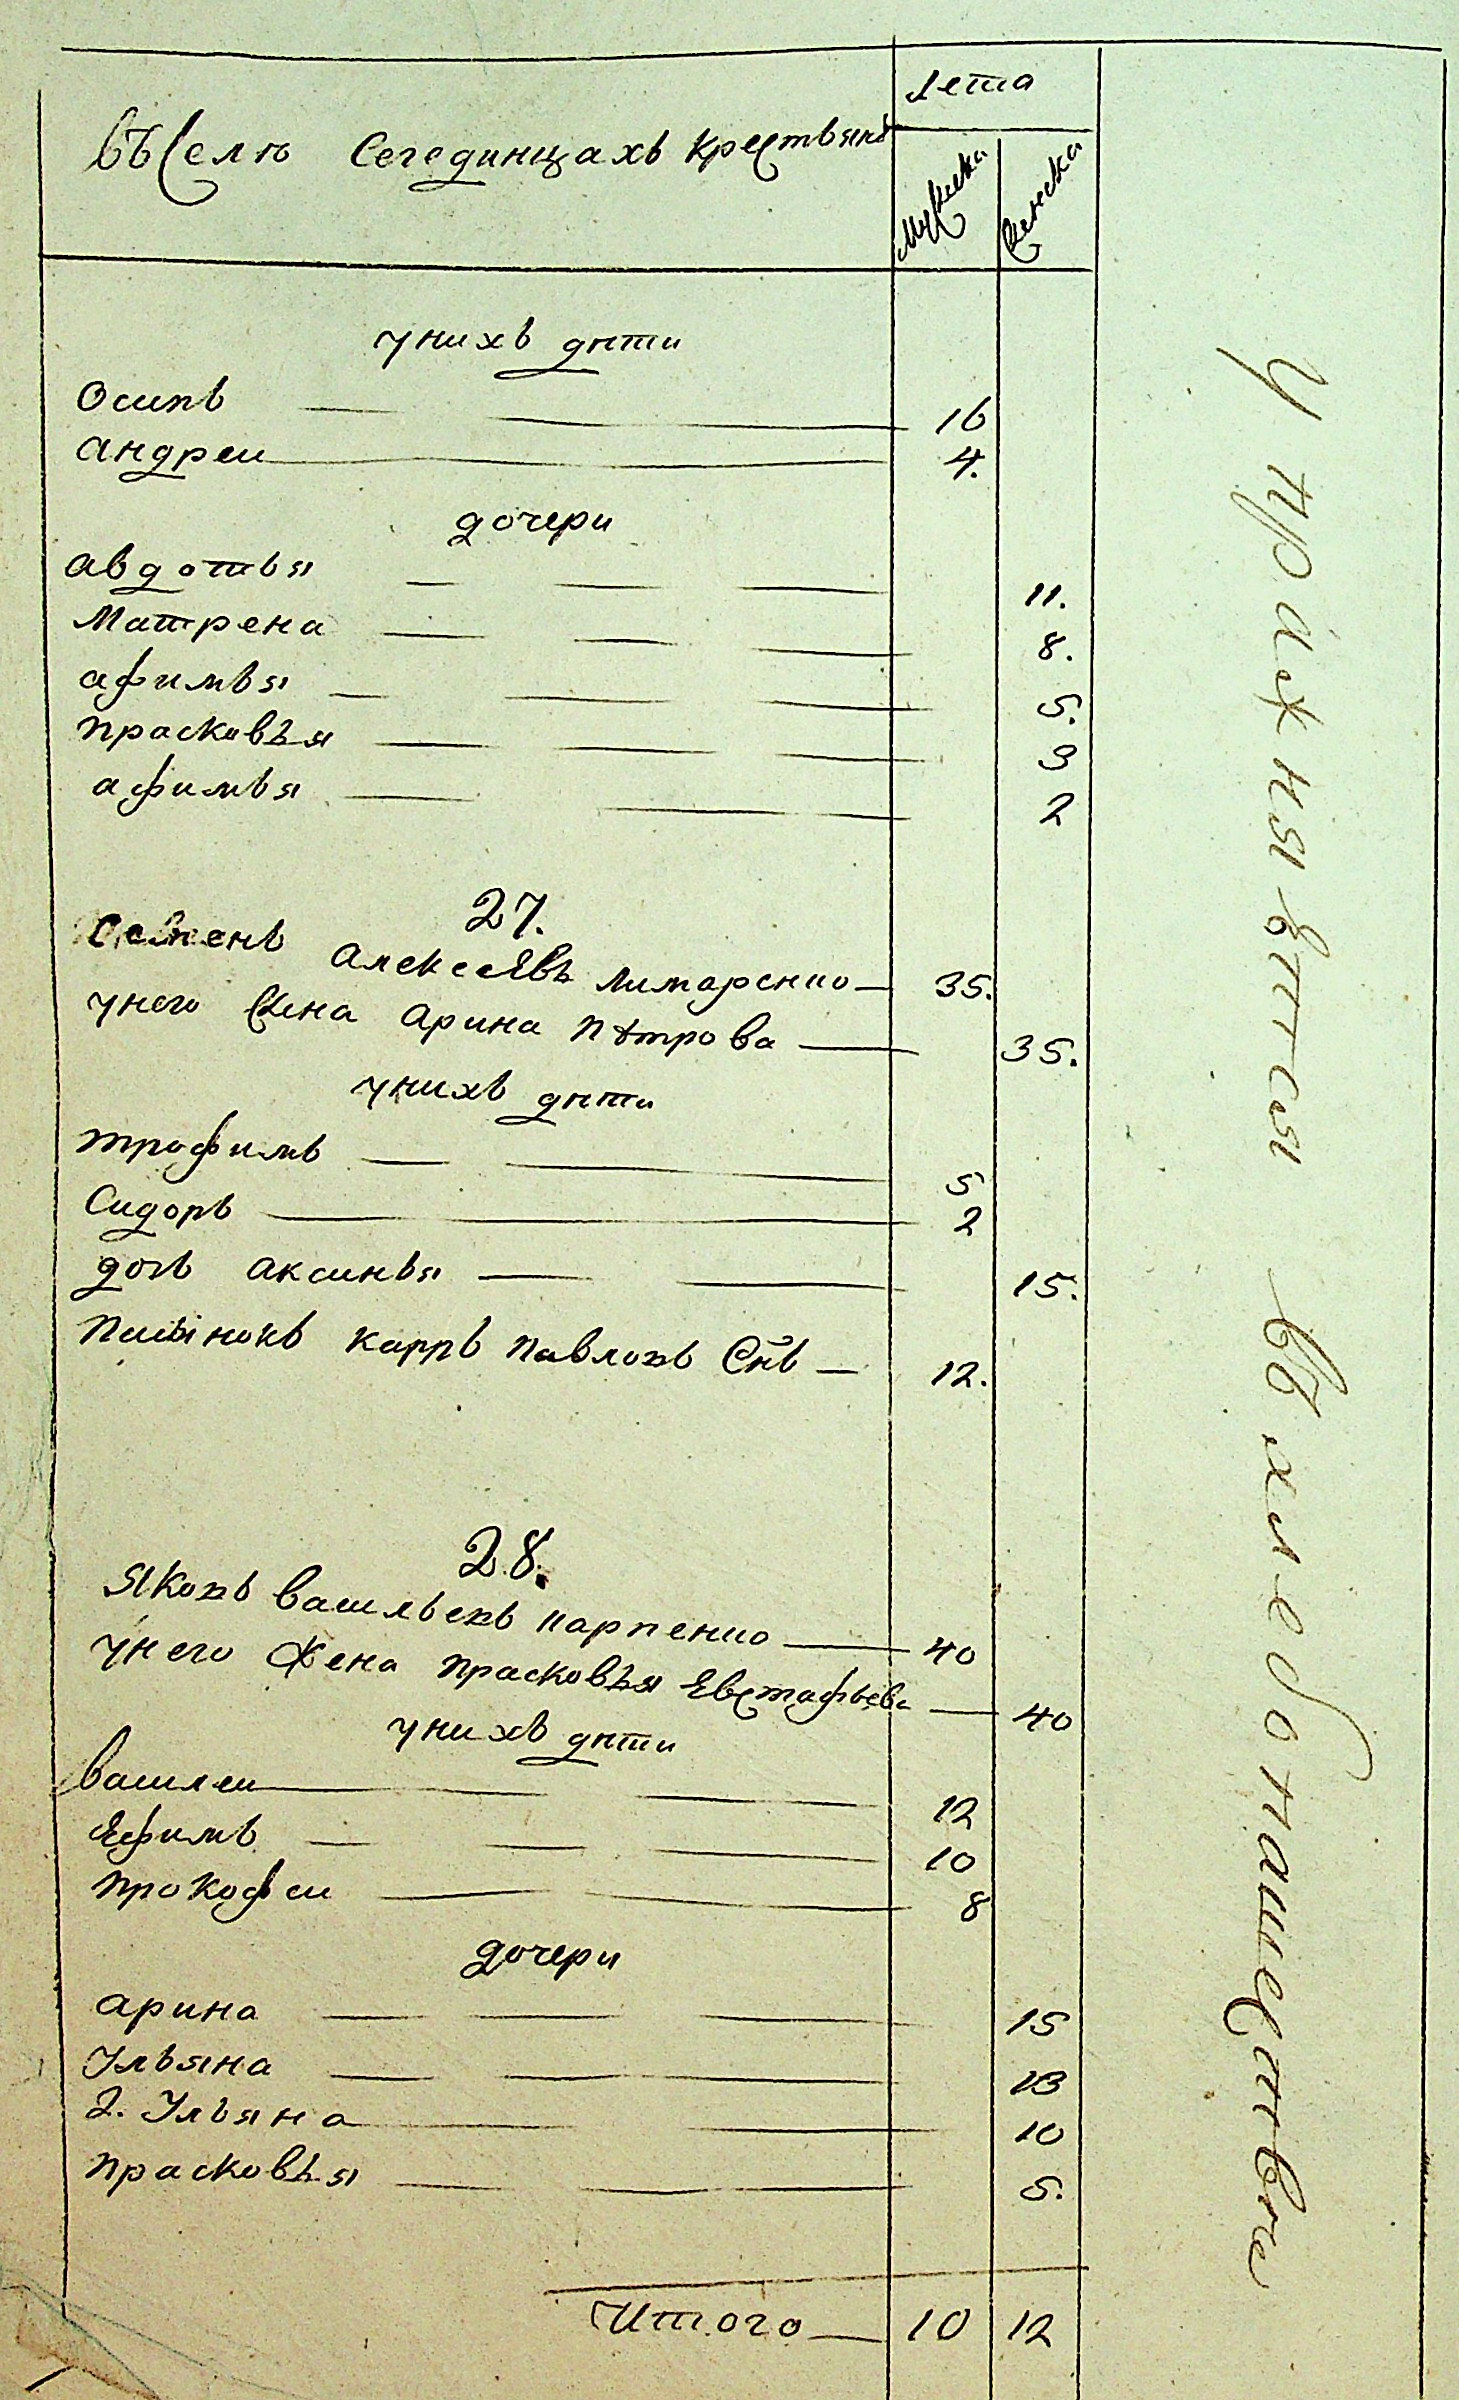 Лета
въ селѣ Сегединцахъ крестьянъ
Мужеска
Женска
у нихъ дѣти
Осипъ 16
андреи 4.
дочери
авдотья 11.
Матрена 8.
афимья 5.
прасковъя 3
афимья 2
27.
Семенъ алексеевъ лимаренко 35.
у него жена арина пѣтрова 35.
у нихъ дѣти
трофимъ 5
Сидоръ 2
дочь аксинья 15.
карпъ павловъ Снъ 12.
28.
Яковъ васильевъ карпенко 40
у него жена прасковъя Евстафьева 40
у нихъ дѣти
василеи 12
Ефимъ 10
прокофеи 8
дочери
арина 15
Ульяна 13
2. Ульяна 10
прасковъя 5.
Итого 10 12
Упражняется въ хлебопашествѣ